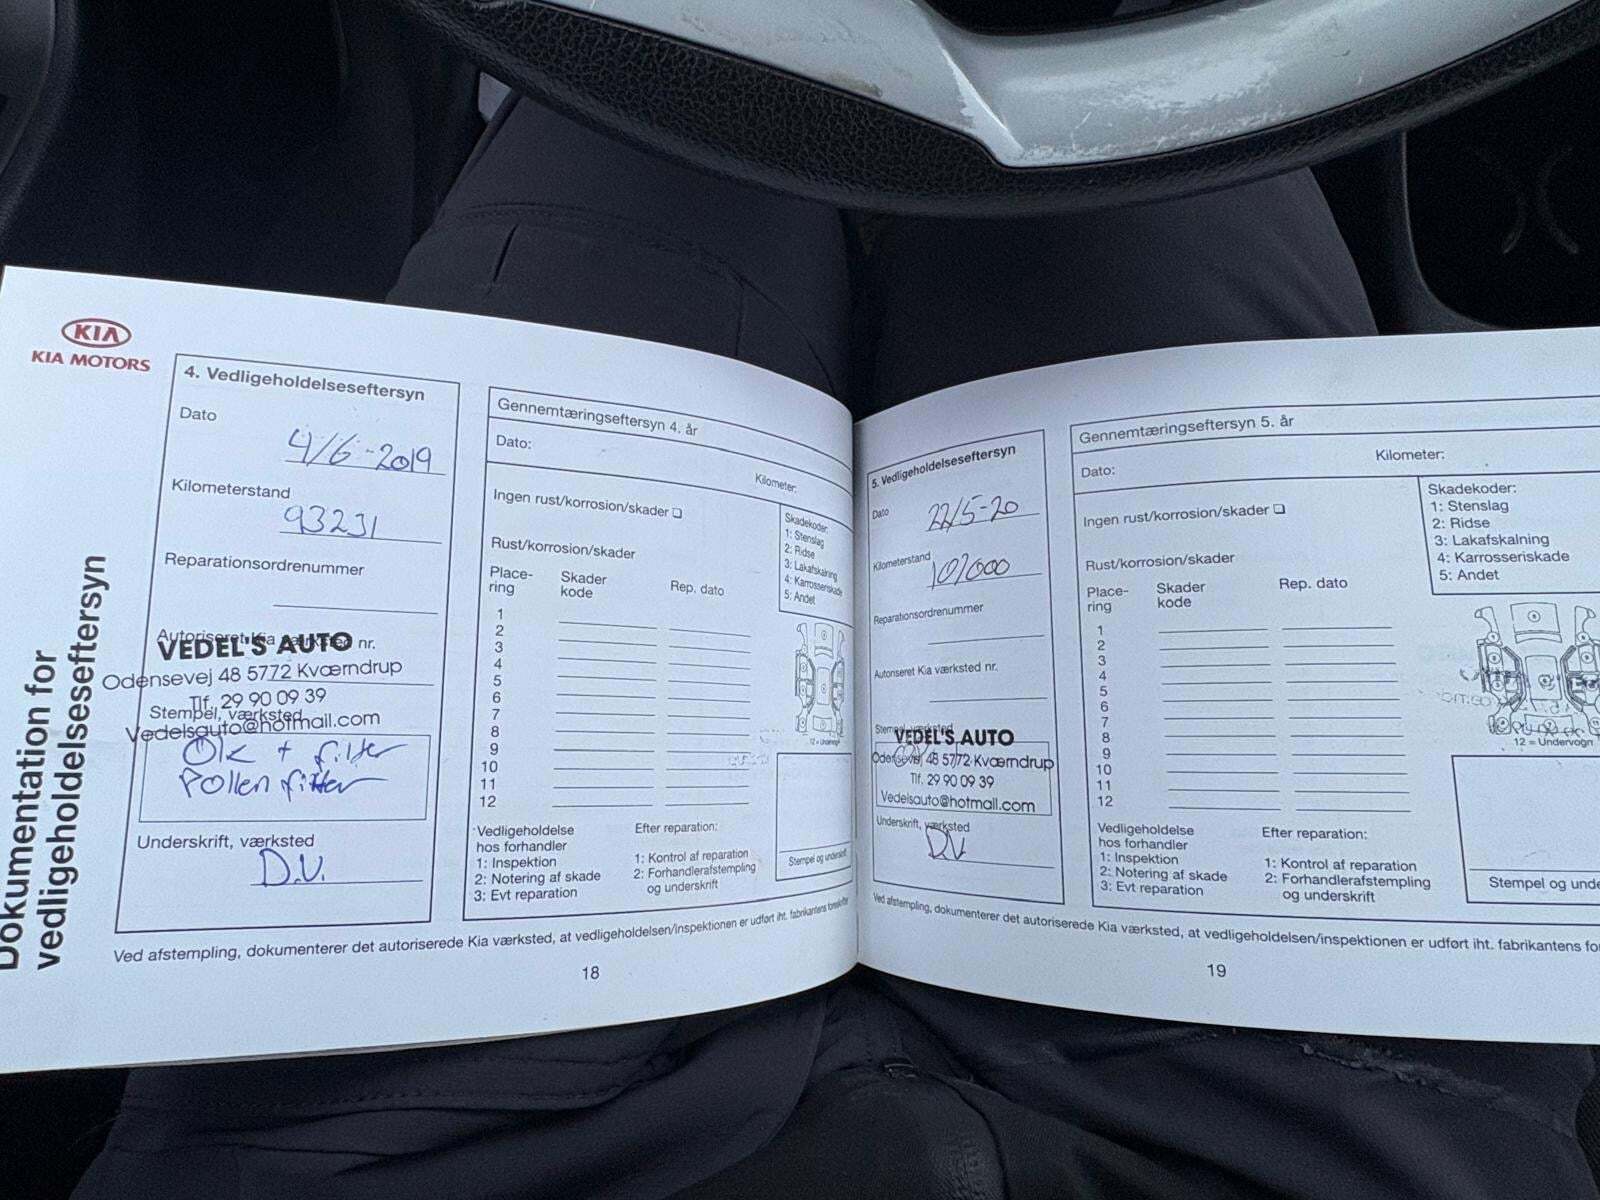 KIA
KIA MOTORS
Dokumentation for
vedligeholdelseseftersyn
4. Vedligeholdelseseftersyn
Dato
4/6-2019
Kilometerstand
93231
Reparationsordrenummer
Autoriseret Kia værksted nr.
VEDEL'S AUTO
Odensevej 48 5772 Kværndrup
Tlf. 29 90 09 39
Stempel, værksted
Vedelsauto@hotmail.com
Olie + filter
Pollen filter
Underskrift, værksted
D.V.
Gennemtæringseftersyn 4. år
Dato:
Kilometer:
Ingen rust/korrosion/skader
Rust/korrosion/skader
Skadekoder:
1: Stenslag
2: Ridse
3: Lakafskalning
4: Karrosseriskade
5: Andet
Place-
ring
Skader
kode
Rep. dato
1
2
3
4
5
6
7
8
9
10
11
12
12 = Undervogn
Vedligeholdelse
hos forhandler
1: Inspektion
2: Notering af skade
3: Evt reparation
Efter reparation:
1: Kontrol af reparation
2: Forhandlerafstempling
og underskrift
Stempel og underskrift
Ved afstempling, dokumenterer det autoriserede Kia værksted, at vedligeholdelsen/inspektionen er udført iht. fabrikantens forskrifter
18
5. Vedligeholdelseseftersyn
Dato
22/5-20
Kilometerstand
107000
Reparationsordrenummer
Autoriseret Kia værksted nr.
Stempel, værksted
VEDEL'S AUTO
Odensevej 48 5772 Kværndrup
Tlf. 29 90 09 39
Vedelsauto@hotmail.com
Underskrift, værksted
D.V
Gennemtæringseftersyn 5. år
Dato:
Kilometer:
Ingen rust/korrosion/skader
Rust/korrosion/skader
Skadekoder:
1: Stenslag
2: Ridse
3: Lakafskalning
4: Karrosseriskade
5: Andet
Place-
ring
Skader
kode
Rep. dato
1
2
3
4
5
6
7
8
9
10
11
12
12 = Undervogn
Vedligeholdelse
hos forhandler
1: Inspektion
2: Notering af skade
3: Evt reparation
Efter reparation:
1: Kontrol af reparation
2: Forhandlerafstempling
og underskrift
Stempel og unde
Ved afstempling, dokumenterer det autoriserede Kia værksted, at vedligeholdelsen/inspektionen er udført iht. fabrikantens fo
19